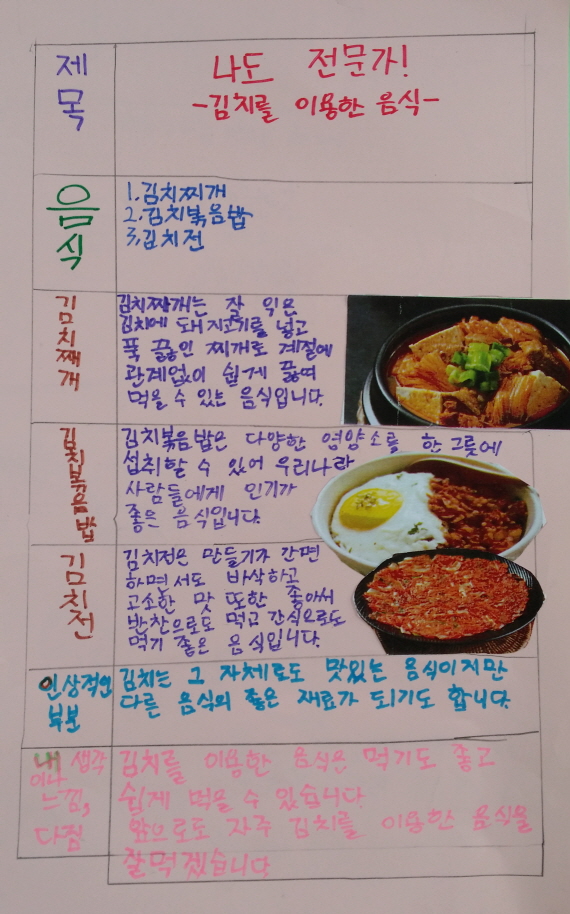 제목
나도 전문가!
-김치를 이용한 음식-
음식
1.김치찌개
2.김치볶음밥
3.김치전
김치찌개
김치찌개는 잘 익은
김치에 돼지고기를 넣고
푹 끓인 찌개로 계절에
관계없이 쉽게 끓여
먹을 수 있는 음식입니다.
김치볶음밥
김치볶음밥은 다양한 영양소를 한 그릇에
섭취할 수 있어 우리나라
사람들에게 인기가
좋은 음식입니다.
김치전
김치전은 만들기가 간편
하면서도 바삭하고
고소한 맛 또한 좋아서
반찬으로도 먹고 간식으로도
먹기 좋은 음식입니다.
인상적인
부분
김치는 그 자체로도 맛있는 음식이지만
다른 음식의 좋은 재료가 되기도 합니다.
내 생각
이나
느낌,
다짐
김치를 이용한 음식은 먹기도 좋고
쉽게 먹을 수 있습니다.
앞으로도 자주 김치를 이용한 음식을
잘먹겠습니다.